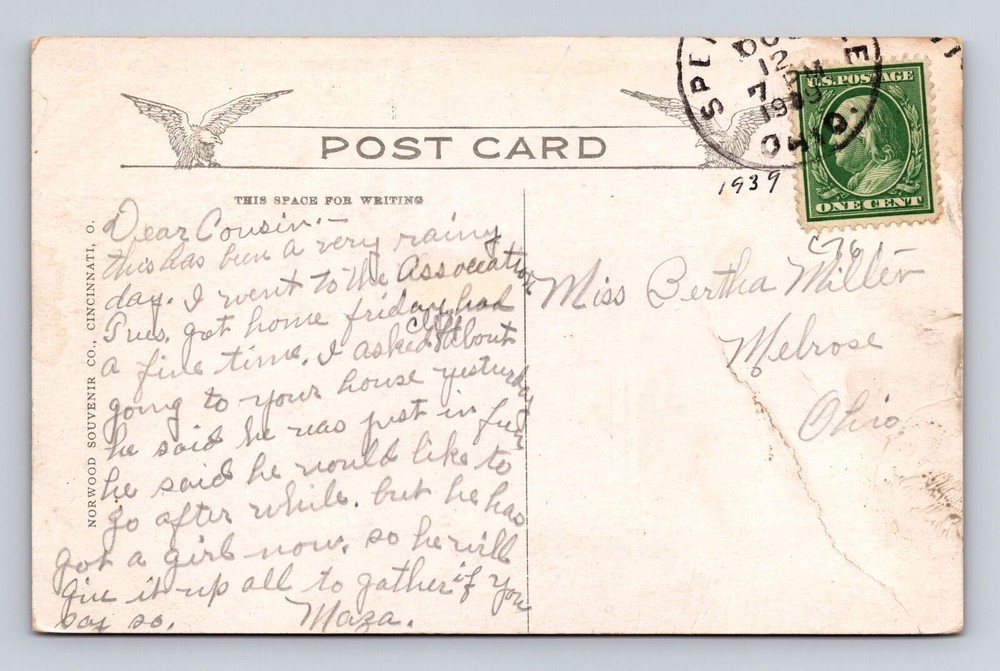 POST CARD
THIS SPACE FOR WRITING
NORWOOD SOUVENIR CO., CINCINNATI, O.
Dear Cousin:-
this has been a very rainy
day. I went to the Association
Tues. got home friday, had
a fine time. I asked about
going to your house yesterday
he said he was just in fun
he said he would like to
go after while. but he has
got a girl now. so he will
give it up all to gather if you
say so. Maza.
12
7
OHIO
U.S. POSTAGE
ONE CENT
1939
Miss Bertha Miller
Melrose
Ohio.